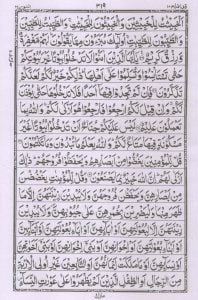 قد افلح ١٨
٣١٩
النور ٢٤
اَلْخَبِيْثٰتُ لِلْخَبِيْثِيْنَ وَالْخَبِيْثُوْنَ لِلْخَبِيْثٰتِ وَالطَّيِّبٰتُ لِلطَّيِّبِيْنَ
وَالطَّيِّبُوْنَ لِلطَّيِّبٰتِ اُولٰٓئِكَ مُبَرَّءُوْنَ مِمَّا يَقُوْلُوْنَ لَهُمْ مَّغْفِرَةٌ
وَّرِزْقٌ كَرِيْمٌ يٰۤاَيُّهَا الَّذِيْنَ اٰمَنُوْا لَا تَدْخُلُوْا بُيُوْتًا غَيْرَ
بُيُوْتِكُمْ حَتّٰى تَسْتَاْنِسُوْا وَتُسَلِّمُوْا عَلٰۤى اَهْلِهَا ذٰلِكُمْ خَيْرٌ لَّكُمْ لَعَلَّكُمْ
تَذَكَّرُوْنَ فَاِنْ لَّمْ تَجِدُوْا فِيْهَاۤ اَحَدًا فَلَا تَدْخُلُوْهَا حَتّٰى يُؤْذَنَ
لَكُمْ وَاِنْ قِيْلَ لَكُمُ ارْجِعُوْا فَارْجِعُوْا هُوَ اَزْكٰى لَكُمْ وَاللّٰهُ بِمَا
تَعْمَلُوْنَ عَلِيْمٌ لَيْسَ عَلَيْكُمْ جُنَاحٌ اَنْ تَدْخُلُوْا بُيُوْتًا غَيْرَ
مَسْكُوْنَةٍ فِيْهَا مَتَاعٌ لَّكُمْ وَاللّٰهُ يَعْلَمُ مَا تُبْدُوْنَ وَمَا تَكْتُمُوْنَ
قُلْ لِّلْمُؤْمِنِيْنَ يَغُضُّوْا مِنْ اَبْصَارِهِمْ وَيَحْفَظُوْا فُرُوْجَهُمْ ذٰلِكَ
اَزْكٰى لَهُمْ اِنَّ اللّٰهَ خَبِيْرٌۢ بِمَا يَصْنَعُوْنَ وَقُلْ لِّلْمُؤْمِنٰتِ يَغْضُضْنَ
مِنْ اَبْصَارِهِنَّ وَيَحْفَظْنَ فُرُوْجَهُنَّ وَلَا يُبْدِيْنَ زِيْنَتَهُنَّ اِلَّا مَا
ظَهَرَ مِنْهَا وَلْيَضْرِبْنَ بِخُمُرِهِنَّ عَلٰى جُيُوْبِهِنَّ وَلَا يُبْدِيْنَ
زِيْنَتَهُنَّ اِلَّا لِبُعُوْلَتِهِنَّ اَوْ اٰبَآئِهِنَّ اَوْ اٰبَآءِ بُعُوْلَتِهِنَّ اَوْ
اَبْنَآئِهِنَّ اَوْ اَبْنَآءِ بُعُوْلَتِهِنَّ اَوْ اِخْوَانِهِنَّ اَوْ بَنِيْۤ اِخْوَانِهِنَّ اَوْ بَنِيْۤ
اَخَوٰتِهِنَّ اَوْ نِسَآئِهِنَّ اَوْ مَا مَلَكَتْ اَيْمَانُهُنَّ اَوِ التّٰبِعِيْنَ غَيْرِ اُولِى الْاِرْبَةِ
مِنَ الرِّجَالِ اَوِ الطِّفْلِ الَّذِيْنَ لَمْ يَظْهَرُوْا عَلٰى عَوْرٰتِ النِّسَآءِ